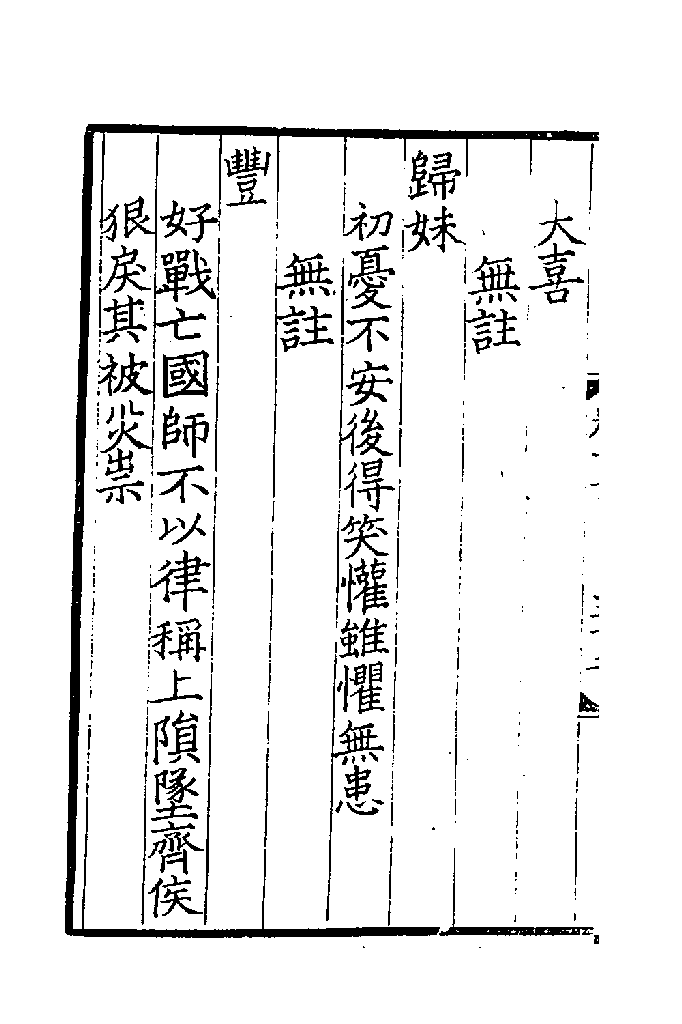 大喜
無註
歸妹
初憂不安後得笑懽雖懼無患
無註
豐
好戰亡國師不以律稱上隕墜齊侯
狠戾其被災祟